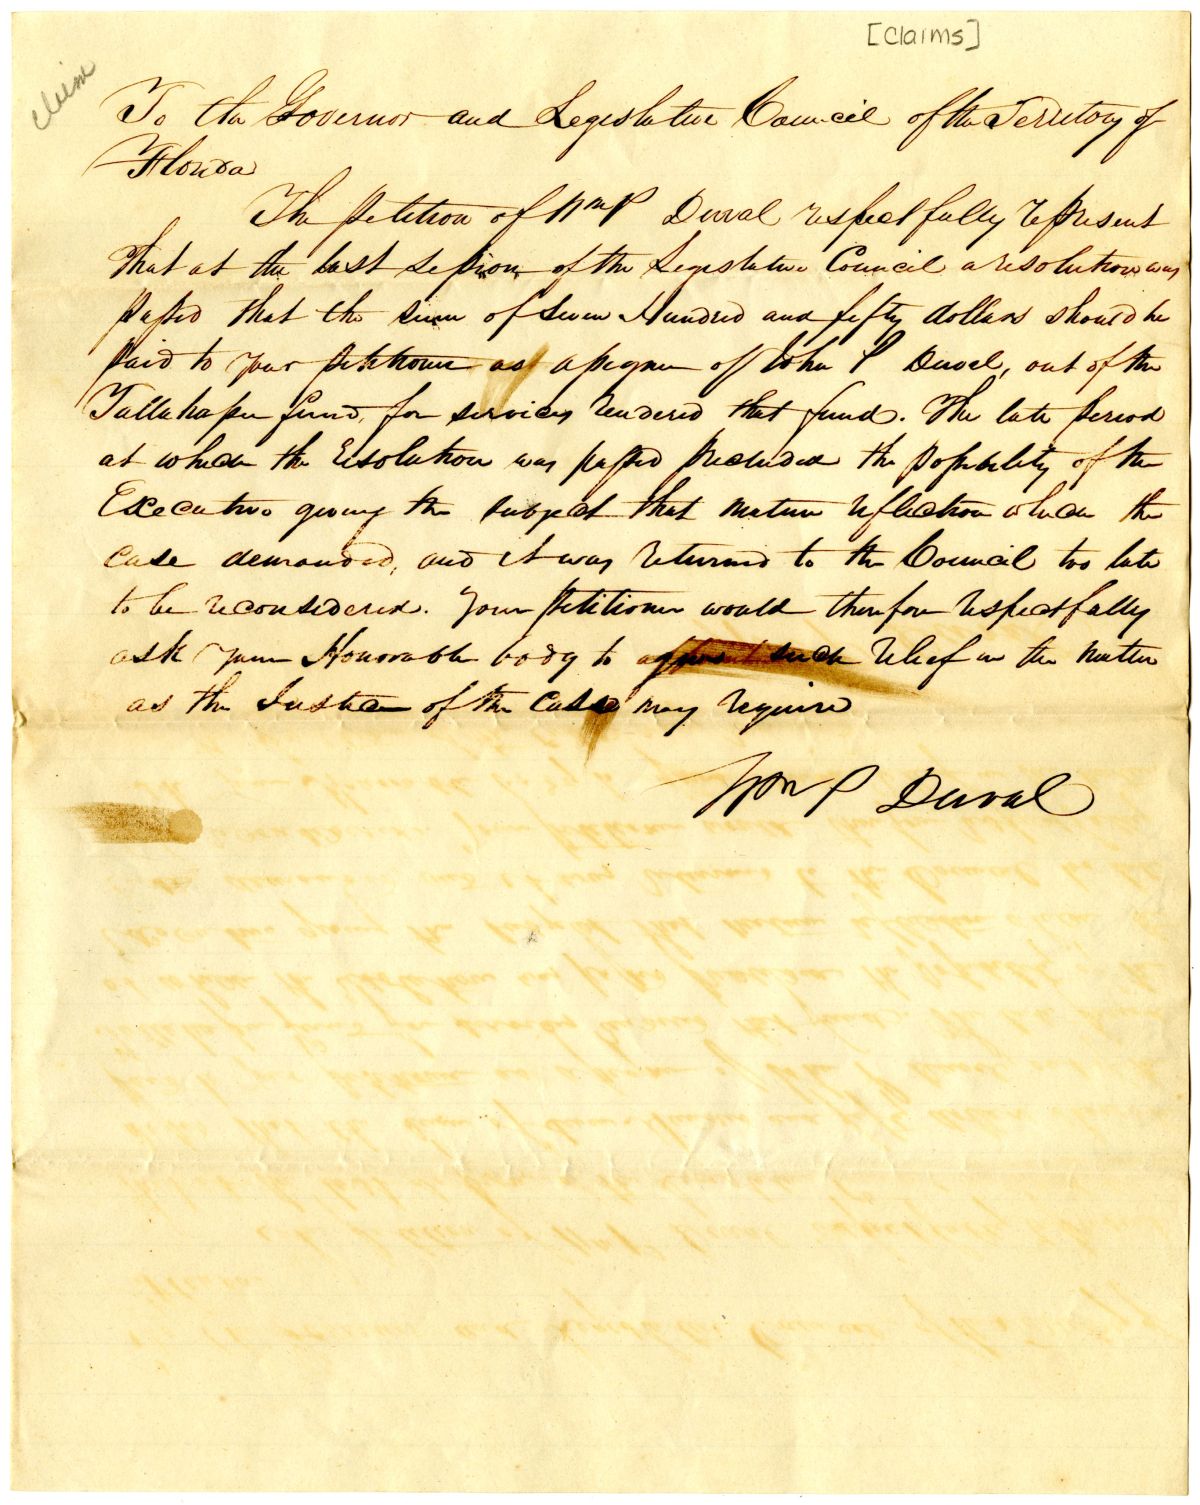 [Claims]
claim
To the Governor and Legislative Council of the Territory of
Florida
The petition of Wm P Duval respectfully represent
that at the last session of the Legislative Council a resolution was
passed that the sum of seven Hundred and fifty dollars should be
paid to your petitioner as assignee of John P Duval, out of the
Tallahassee fund, for services rendered that fund. The late period
at which the resolution was passed precluded the possibility of the
Executive giving the subject that mature reflection which the
case demanded, and it was returned to the Council too late
to be reconsidered. Your petitioner would therefore respectfully
ask your Honorable body to such relief in the matter
as the Justice of the case may require
Wm P Duval